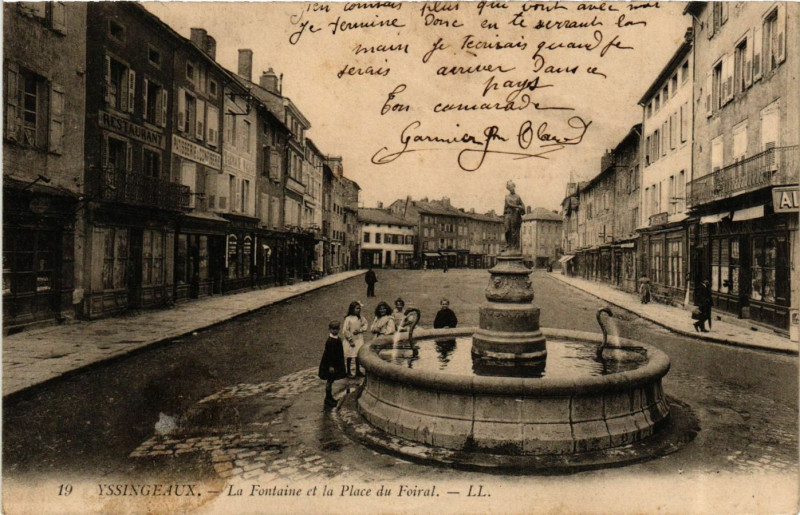 plus que
Je termine Donc en te serrant la
main Je t'ecrirais quand Je
serais arriver Dans ce
pays
Ton camarade
Garnier
RESTAURANT
AL
19 YSSINGEAUX. - La Fontaine et la Place du Foiral. - LL.